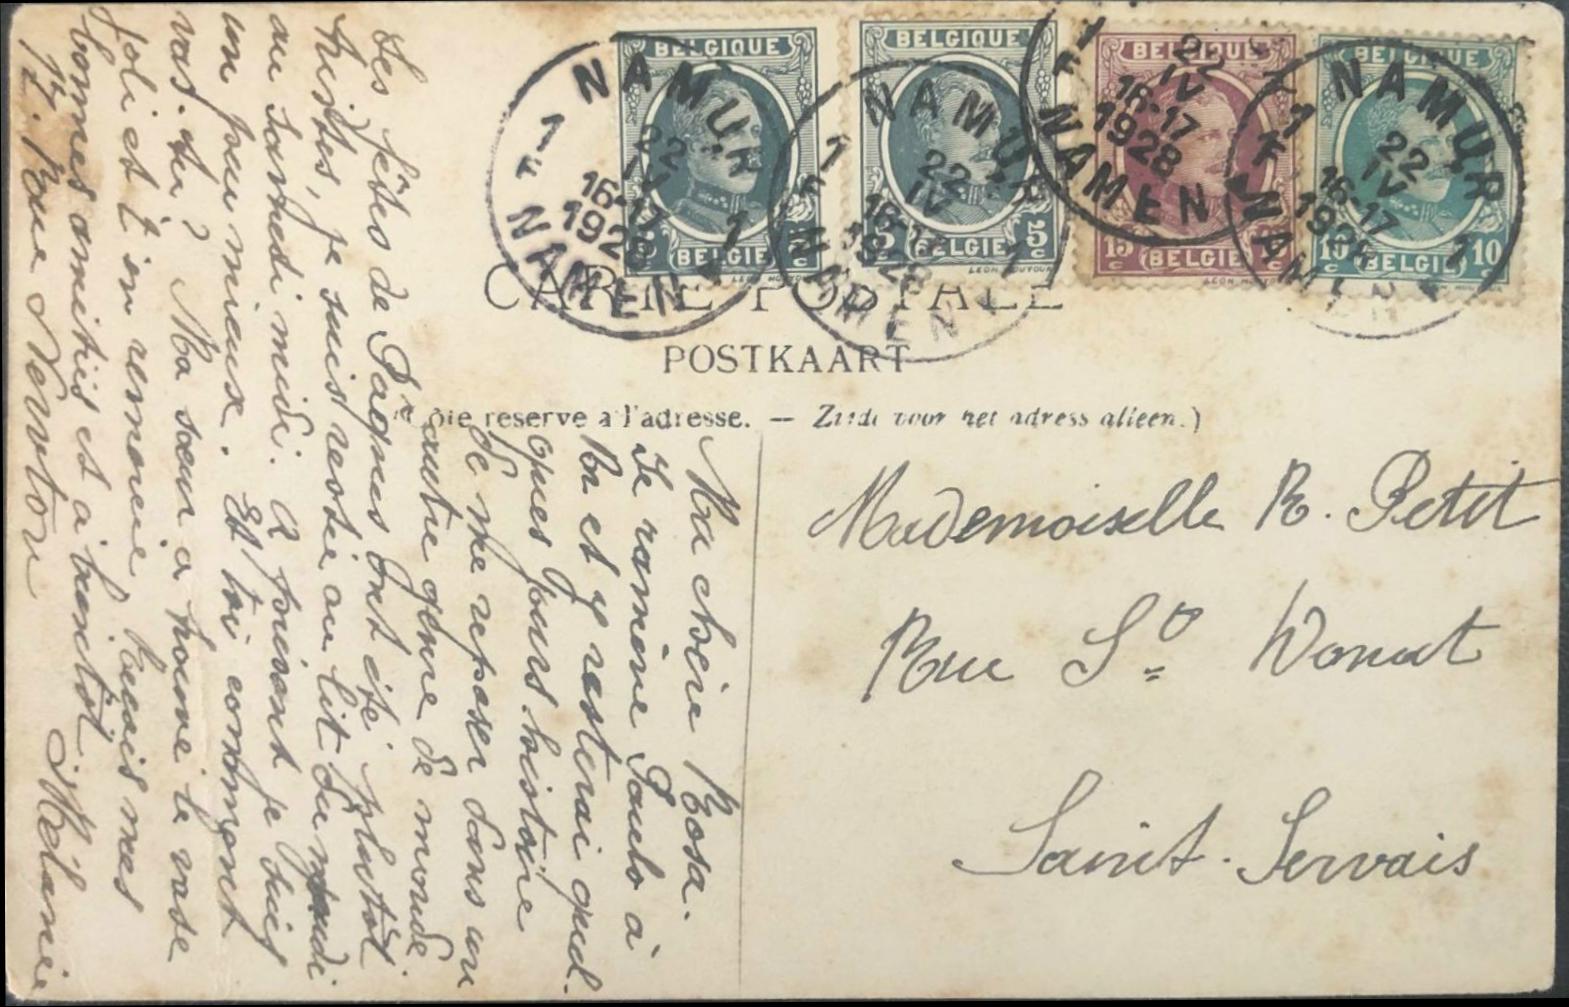 BELGIQUE
BELGIQUE
BELGIQUE
BELGIQUE
5 BELGIE 5
5 BELGIE 5
15 BELGIE
10 BELGIE 10
NAMUR 1
1 F
22
IV
16-17
1928
NAMEN
NAMUR 1
1 F
22
IV
16-17
1928
NAMEN
1 F
22
IV
16-17
1928
NAMEN
NAMUR 1
1 F
22
IV
16-17
1928
NAMEN
CARTE POSTALE
POSTKAART
(Côté réservé à l'adresse. — Zijde voor het adress alleen.)
Mademoiselle R. Petit
Rue St Donat
Saint-Servais
Ma chère Rosa.
Je ramène Paulo à
et y resterai quel-
ques jours histoire
de me reposer dans un
autre genre de monde.
Les fêtes de Pâques ont été plutôt
tristes, je suis restée au lit du
au samedi midi. A présent je suis
un peu mieux. Et toi comment
vas-tu? Ma sœur a trouvé le vase
joli et t'en remercie, reçois mes
bonnes amitiés et à bientôt
Mélanie
12. Rue Newton